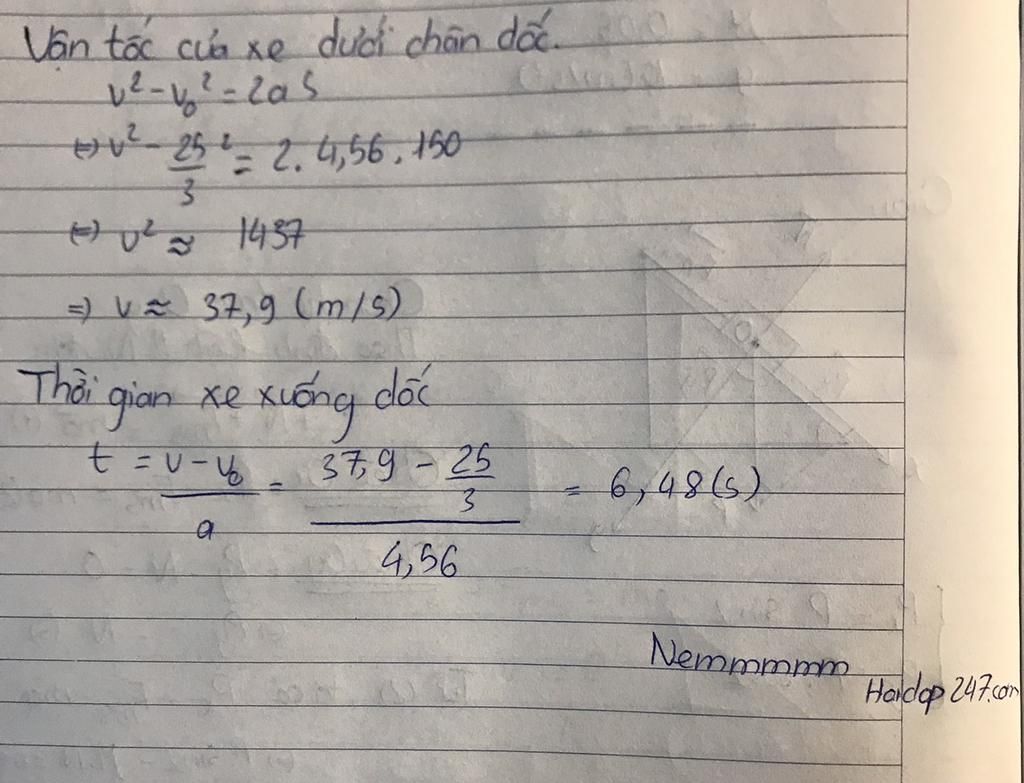 Vận tốc của xe dưới chân dốc.
v² - v₀² = 2aS
⇔ v² - 25/3 ² = 2. 4,56 . 150
⇔ v² ≈ 1437
⇒ v ≈ 37,9 (m/s)
Thời gian xe xuống dốc
t = (v - v₀)/a = (37,9 - 25/3)/4,56 = 6,48 (s)
Nemmmmm
Hoidap247.com